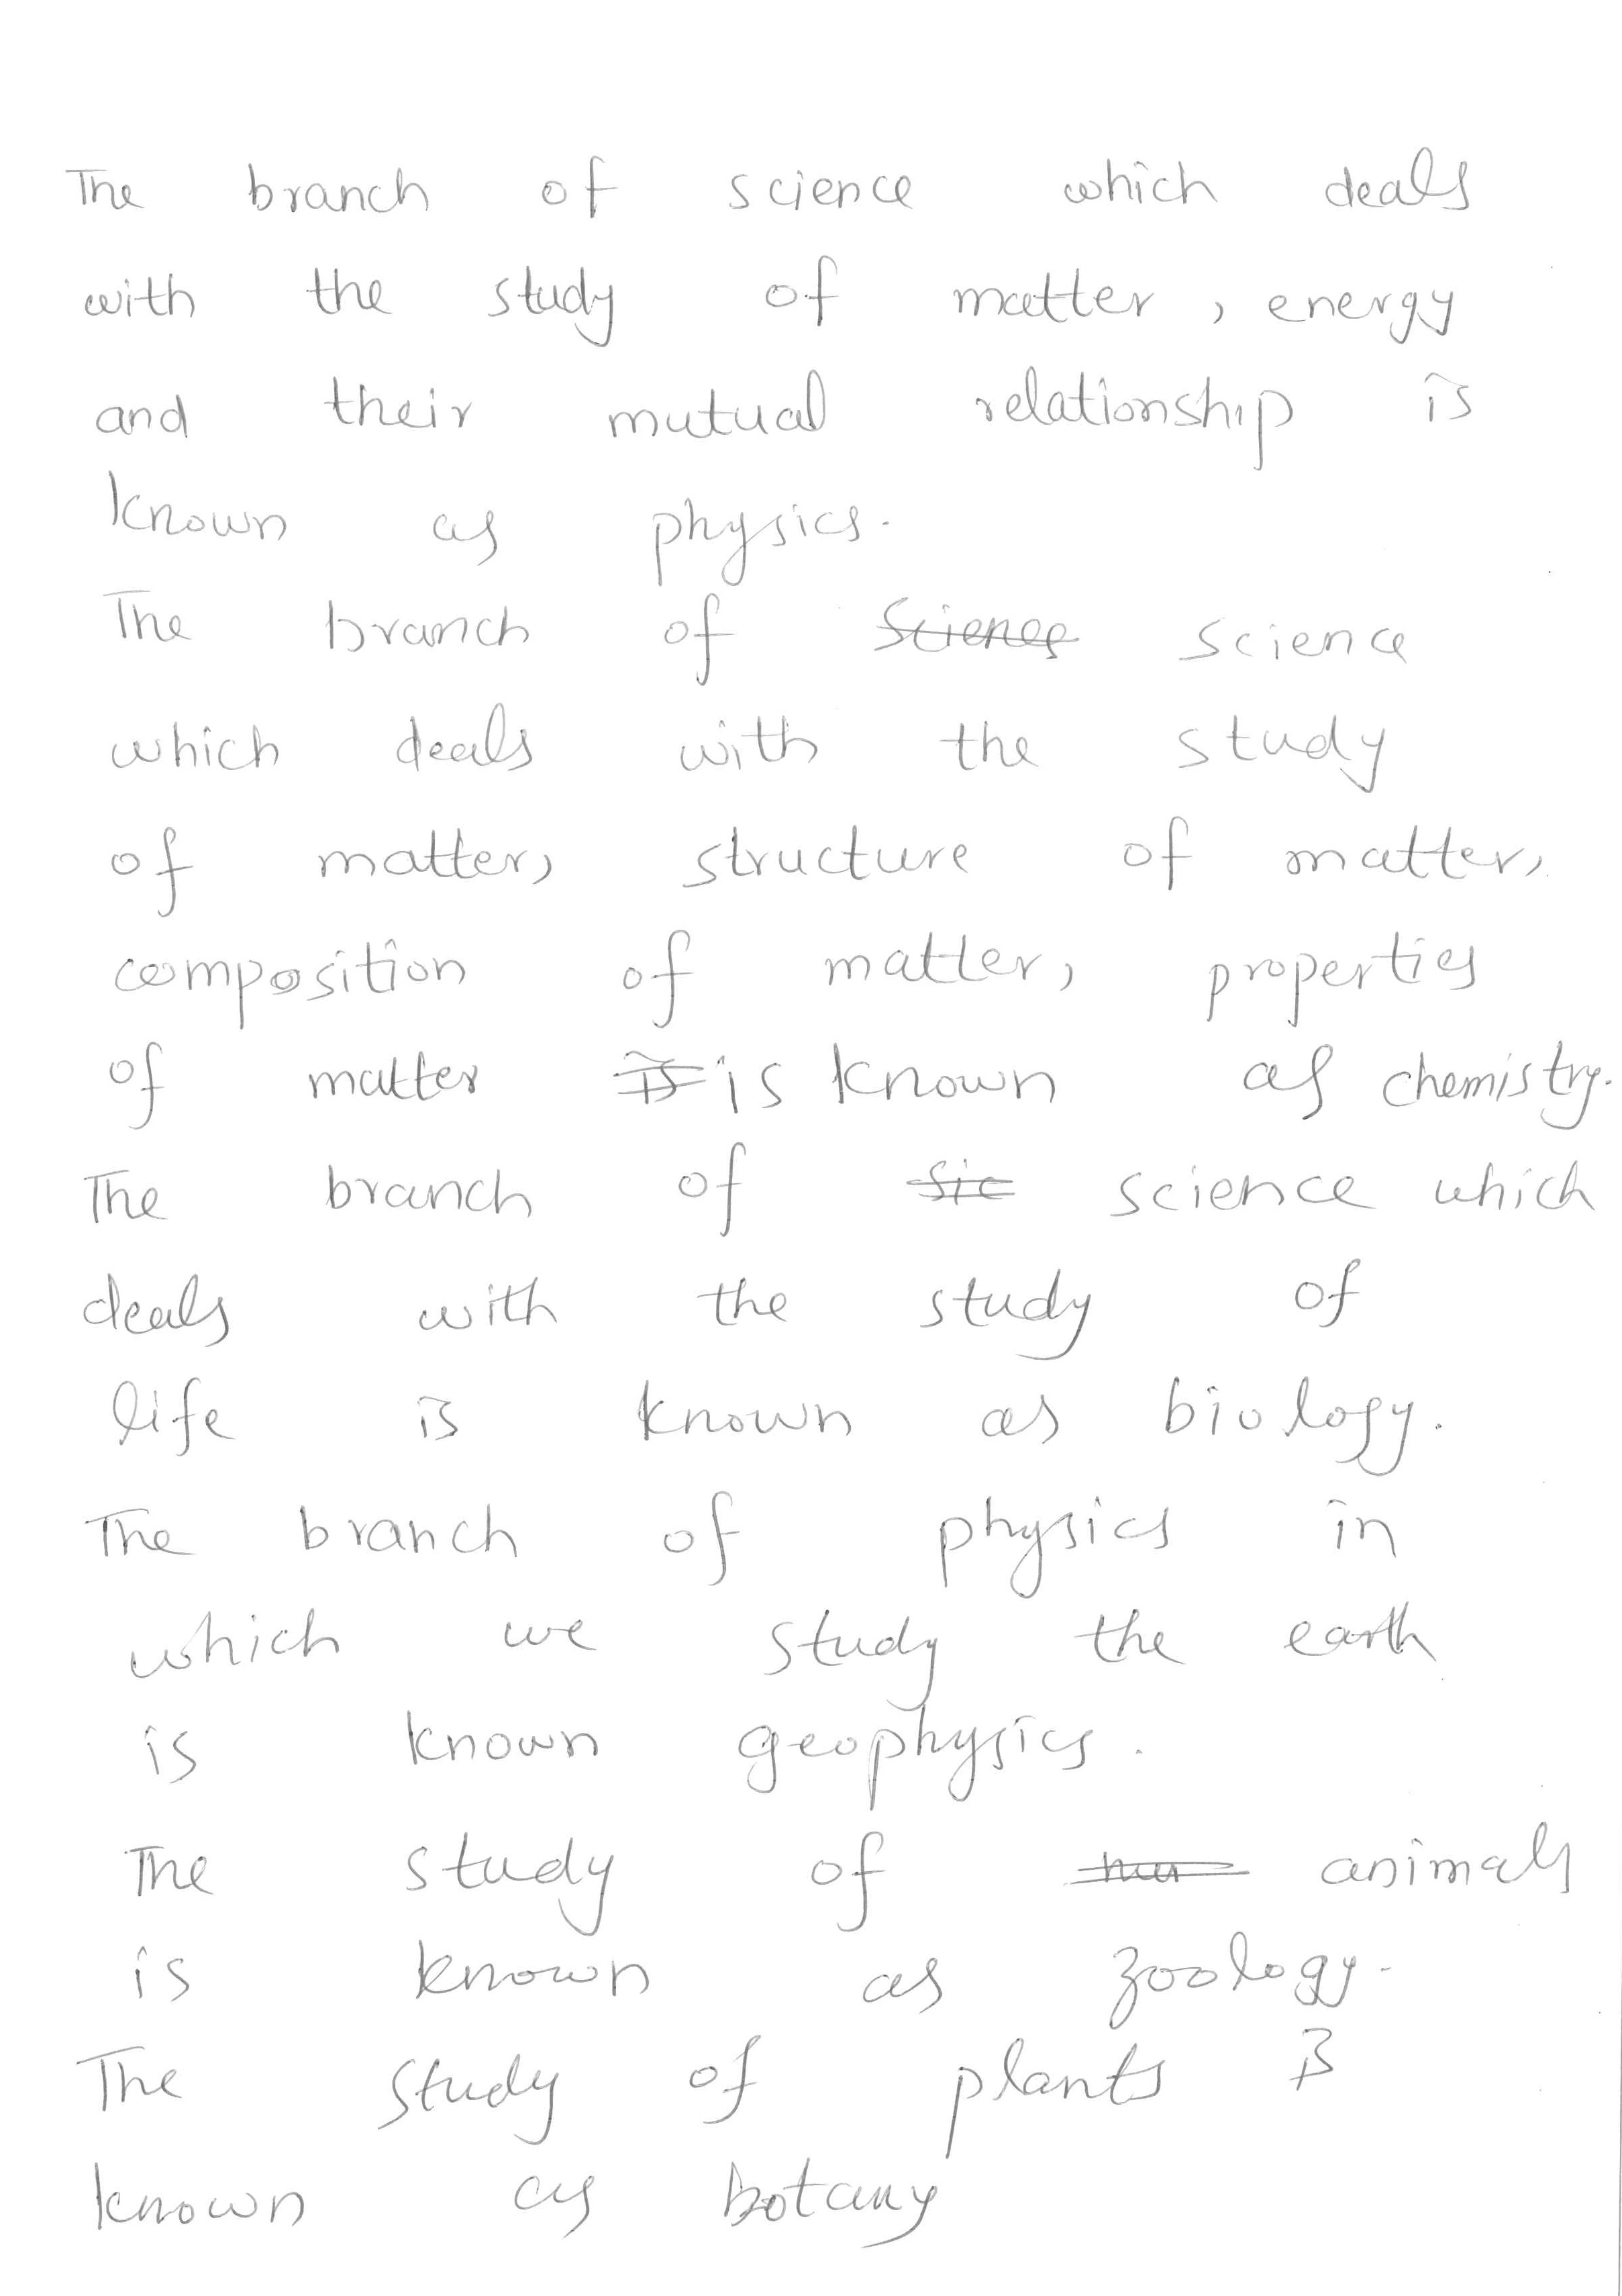 The branch of science which deals
with the study of matter, energy
and their mutual relationship is
known as physics.
The branch of ~~Science~~ science
which deals with the study
of matter, structure of matter,
composition of matter, properties
of matter ~~is~~ is known as chemistry.
The branch of ~~sic~~ science which
deals with the study of
life is known as biology.
The branch of physics in
which we study the earth
is known geophysics.
The study of animals
is known as zoology.
The study of plants is
known as botany